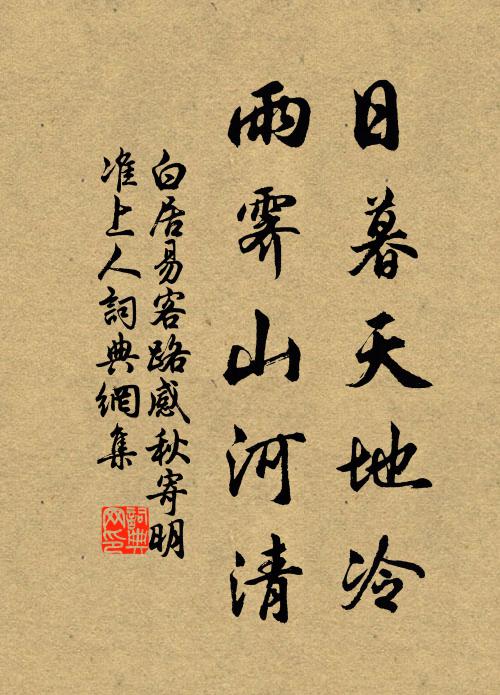 日暮天地冷
雨霽山河清
白居易客路感秋寄明
准上人詞典網集
詞典
网印